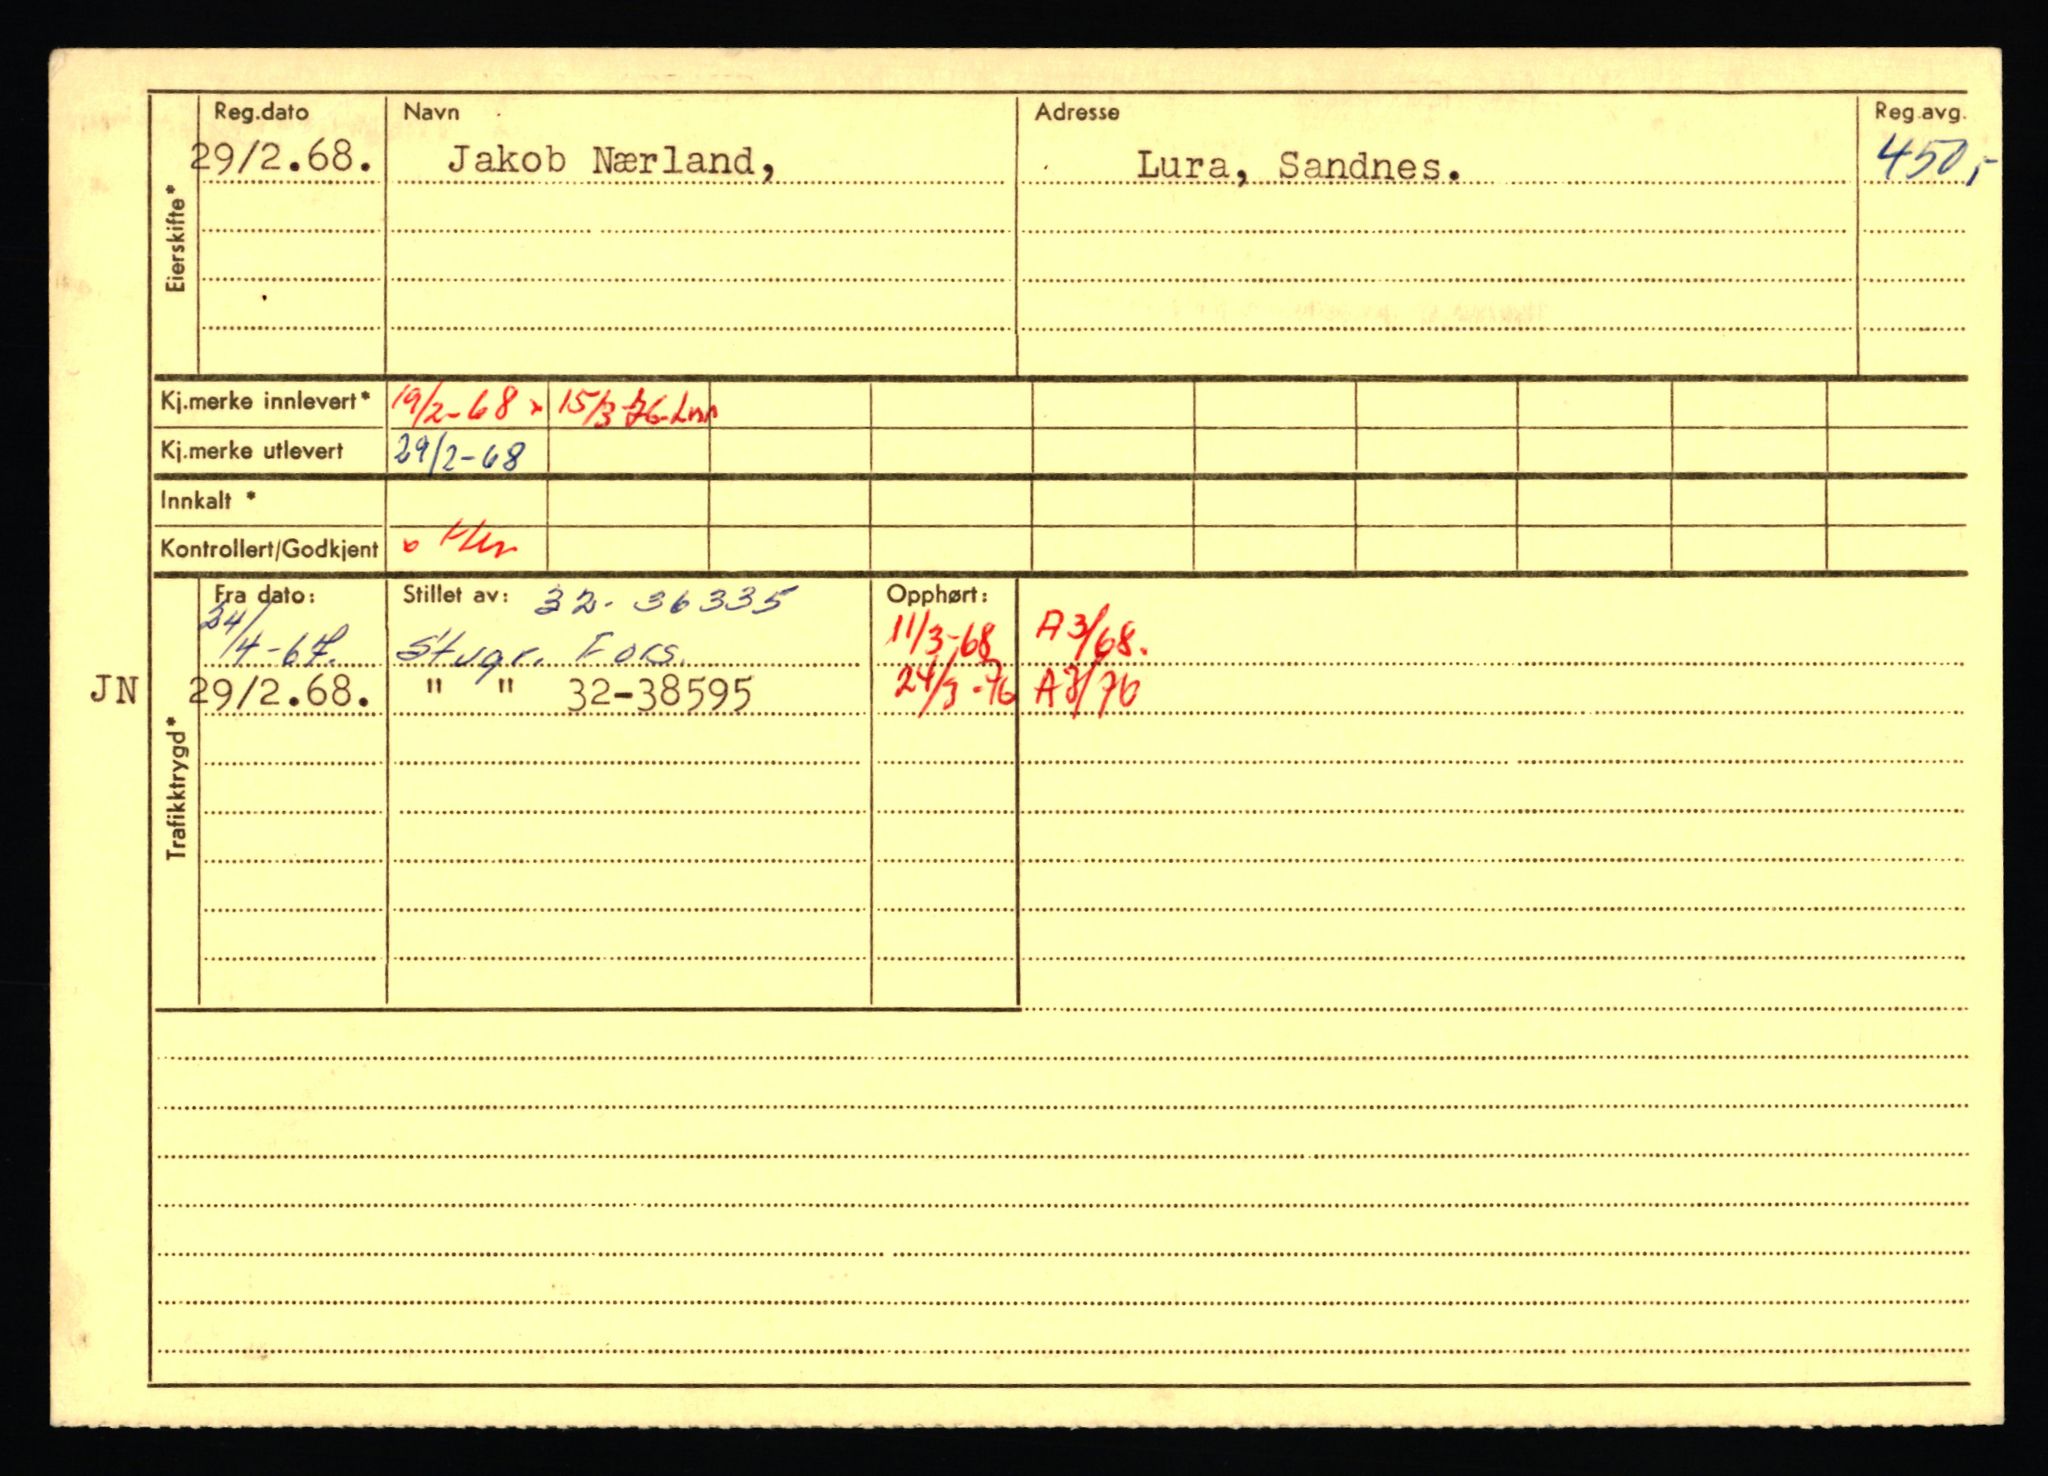 Reg.dato Navn Adresse Reg.avg.
29/2.68. Jakob Nærland, Lura, Sandnes. 450,-
Eierskifte*
Kj.merke innlevert* 19/2-68 x 15/3-76
Kj.merke utlevert 29/2-68
Innkalt *
Kontrollert/Godkjent
Fra dato: Stillet av: 32-36335 Opphørt:
24/4-67. Stvgr. Fors. 11/3-68 A3/68.
JN 29/2.68. " " 32-38595 24/3-76 A3/76
Trafikktrygd*